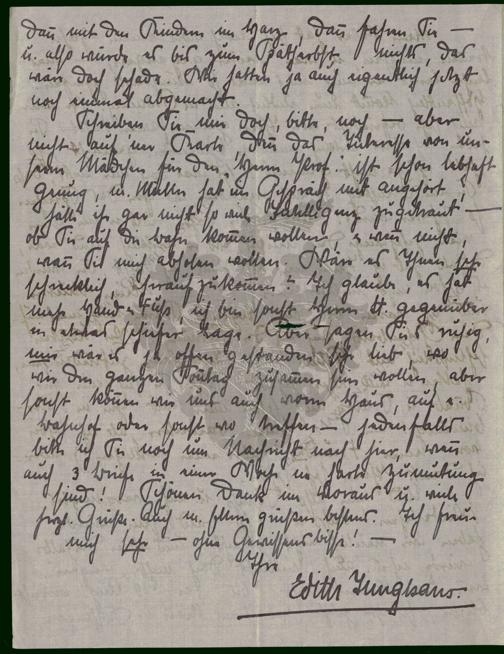 dann mit den Kindern im Harz, dann fahren Sie —
u. also würde es bis zum Spätherbst nichts, das
wär doch schade. Wir hatten ja auch eigentlich jetzt
noch einmal abgemacht.
Schreiben Sie mir doch, bitte, noch — aber
nicht auf ner Karte, denn das Interesse von un-
serm Mädchen für den "Herrn Prof." ist schon lebhaft
genug, m. Mutter hat ein Gespräch mit angehört!
hätt ihr gar nicht so viel Intelligenz zugetraut —
ob Sie auf die Bahn kommen wollen, u. wenn nicht,
wann Sie mich abholen wollen. Wär es Ihnen sehr
schrecklich, heraufzukommen? Ich glaube, es hat
mehr Hand u. Fuß, ich bin sonst Herrn H. gegenüber
in etwas schiefer Lage. Aber sagen Sie's ruhig,
mir wär es ja offen gestanden sehr lieb, wo
wir den ganzen Sonntag zusammen sein wollen, aber
sonst können wir uns auch vorm Haus, auf e.
Bahnhof oder sonst wo treffen — jedenfalls
bitte ich Sie noch um Nachricht nach hier, wenn
auch 3 Briefe in einer Woche ne harte Zumutung
sind! Schönen Dank im Voraus u. viele
herzl. Grüße. Auch m. Eltern grüßen bestens. Ich freu
mich sehr — ohne Gewissensbisse! —
Ihre
Edith Junghans.